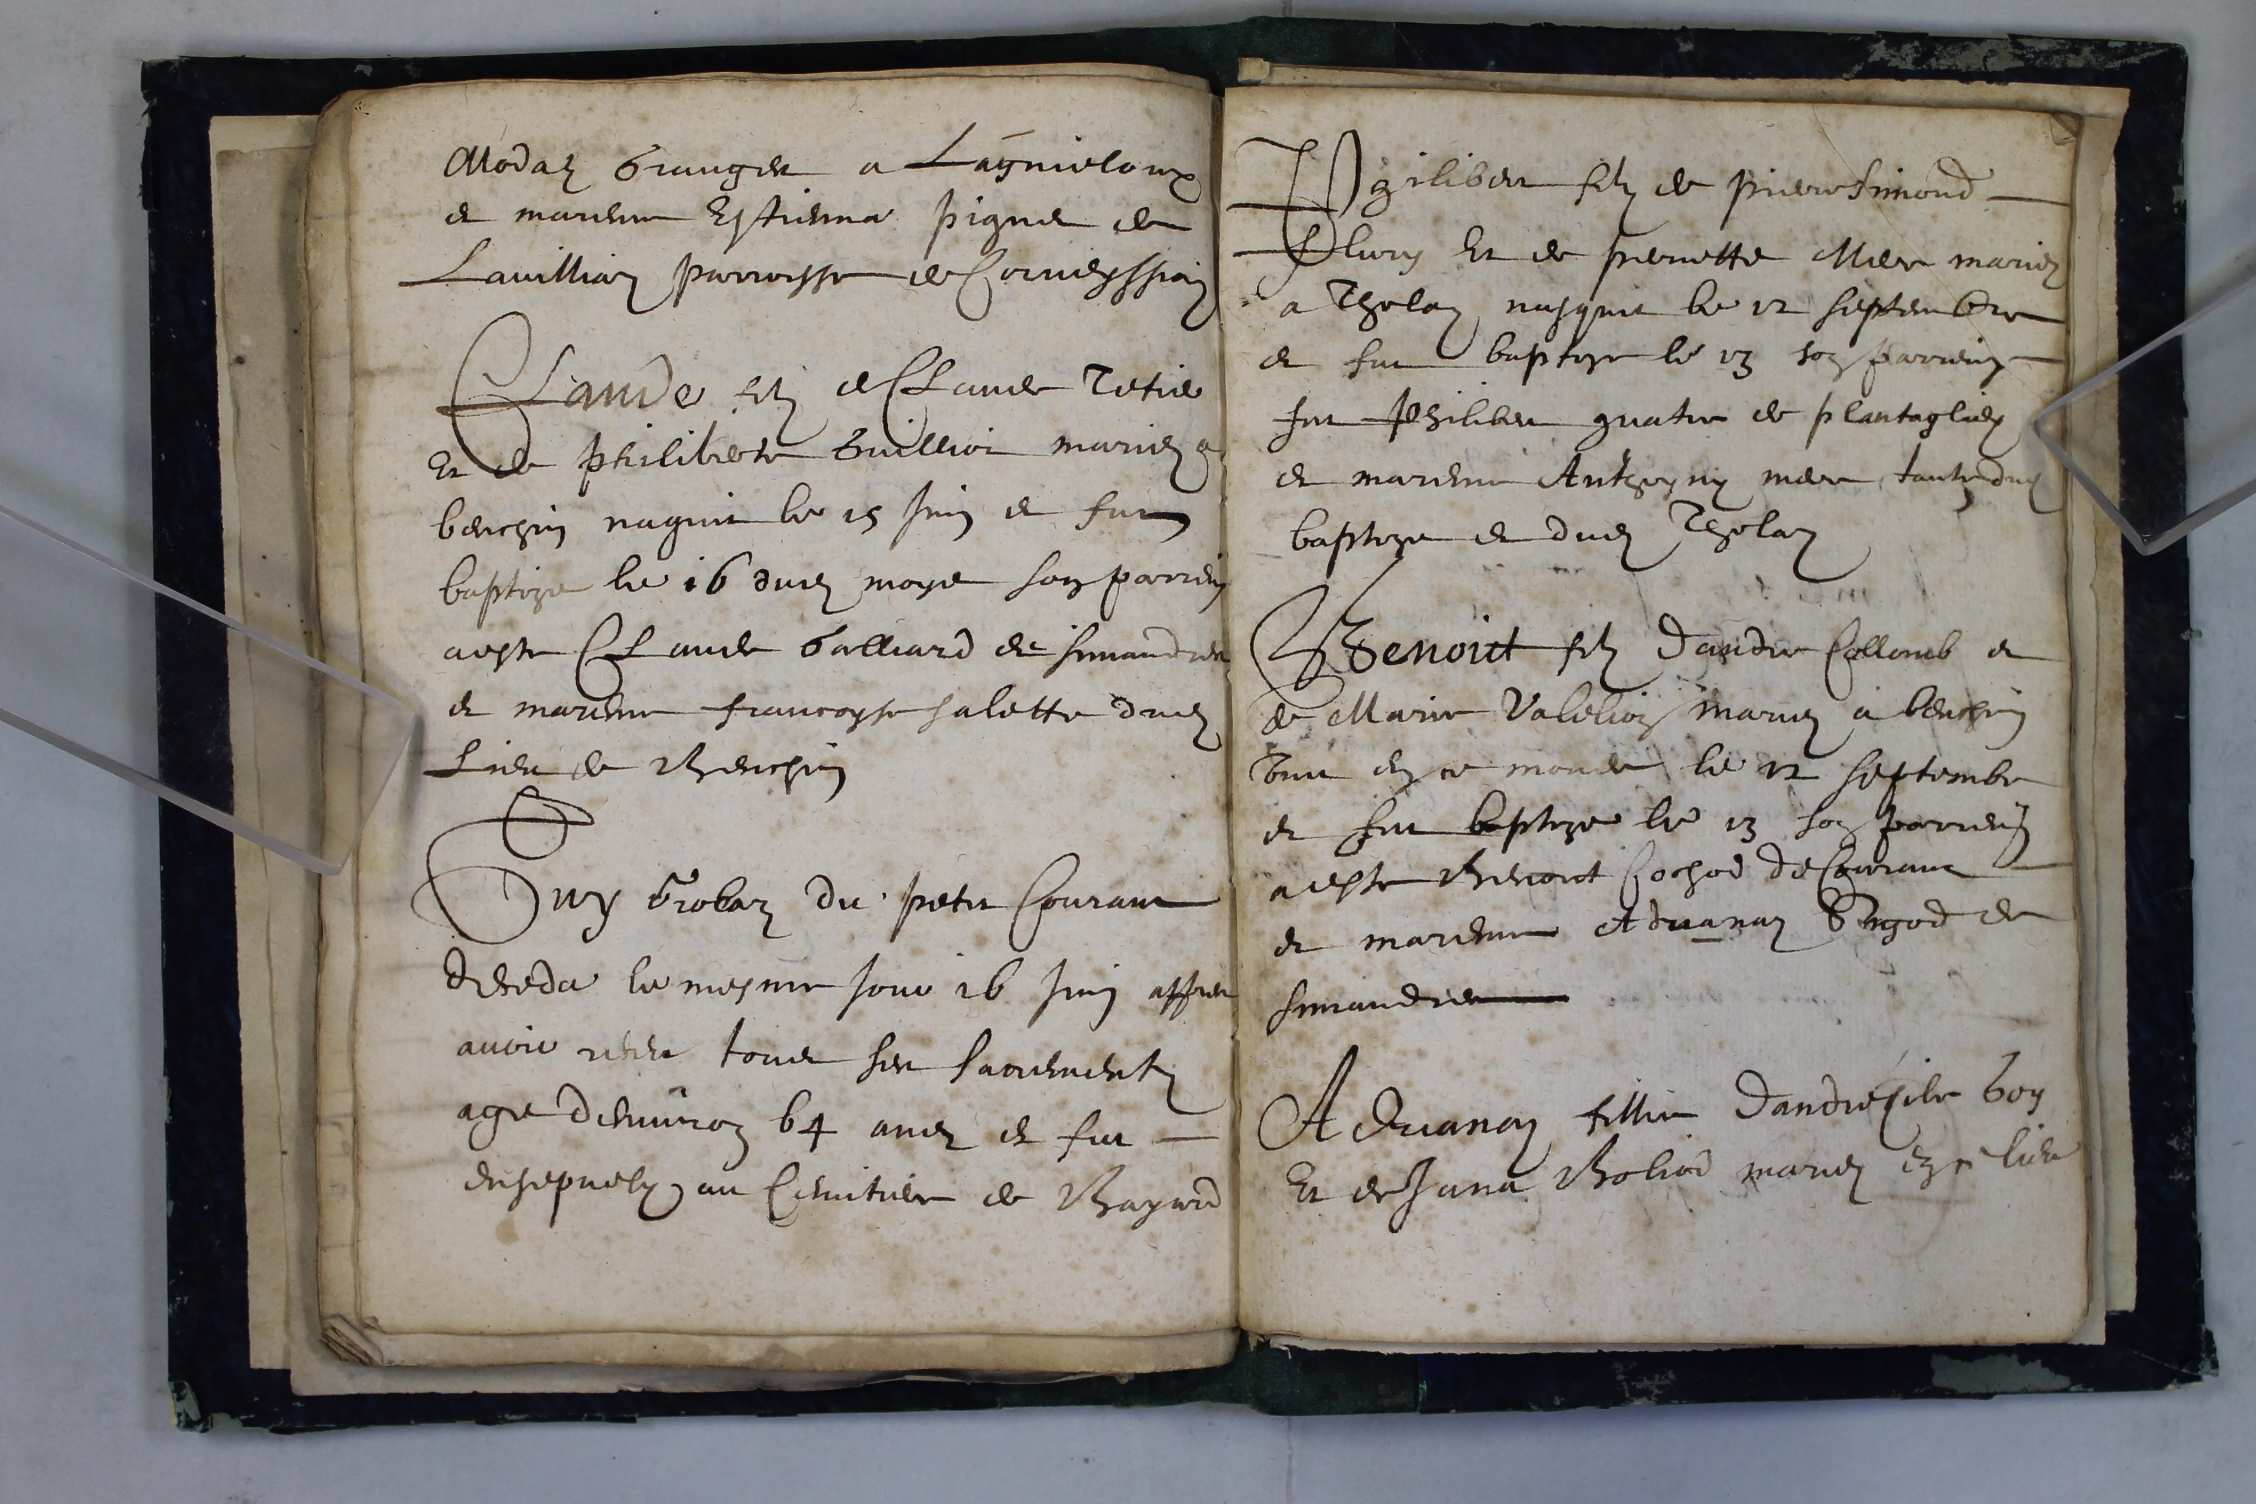 Modaz granger a Lagnieloux
et marenne Estienna pignet de
Lavilliaz parroysse de Corveyssia
Claude filz de Claude Tetié
Et de philiberte Guillion mariez a
benchin naquit le 15 Juin et fut
baptize le 16 dudz moys son parrein
aeste Claude Galliard de simandre
et marenne francoyse salette dudz
Lieu de Benchin
Guy Grobaz du petit Courant
deceda le mesme jour 16 Juin appres
avoir receu toues ses sacrementz
agé denviron 64 anez et fut
ensepvely au Cimitiere de Bayard
Philibert filz de pierre simond
flury Et de pernette Mere mariez
a Tholaz nasquit le 12 septembre
et fut baptize le 13 son parrein
fut philibert quatre de plantaglieu
et marenne Anthoyny mere tante dudz
baptize et dudz Tholaz
Benoict filz Dandre Collomb et
de Marie Valelion mariez a benchin
vint en ce monde le 12 septembre
et fut baptize le 13 son parrein
aeste Benoict Cochod de Courant
et marenne Advanaz Gugod de
simandre
Advanaz fillie Dandre file boy
Et de Jana Boliod mariez en ce lieu